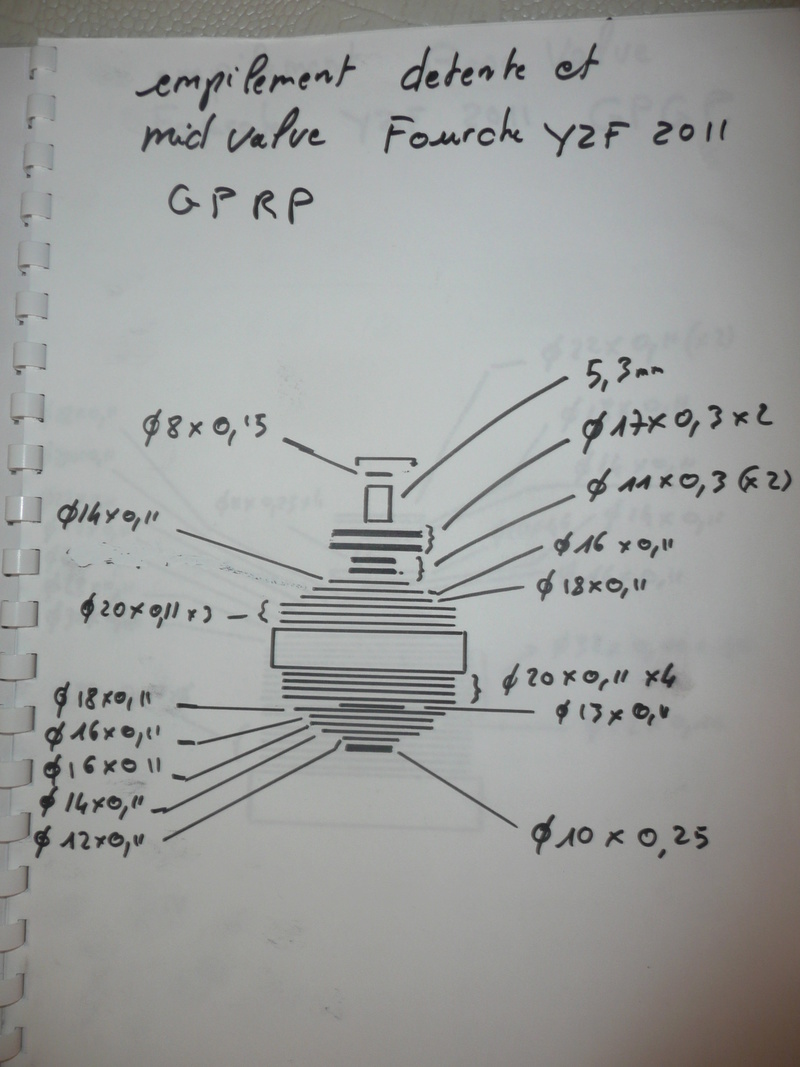 empilement detente et
mid valve Fourche YZF 2011
GPRP
5,3mm
ϕ8x0,15
ϕ17x0,3x2
ϕ11x0,3(x2)
ϕ14x0,11
ϕ16x0,11
ϕ18x0,11
ϕ20x0,11x3
ϕ20x0,11x4
ϕ18x0,11
ϕ13x0,11
ϕ16x0,11
ϕ16x0 11
ϕ14x0,11
ϕ12x0,11
ϕ10x0,25